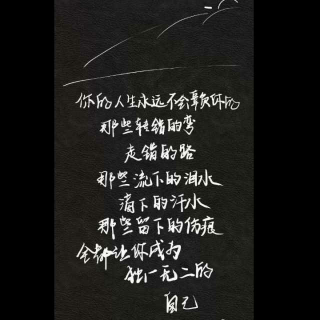 你的人生永远不会辜负你的
那些转错的弯
走错的路
那些流下的泪水
滴下的汗水
那些留下的伤痕
全都让你成为
独一无二的
自己